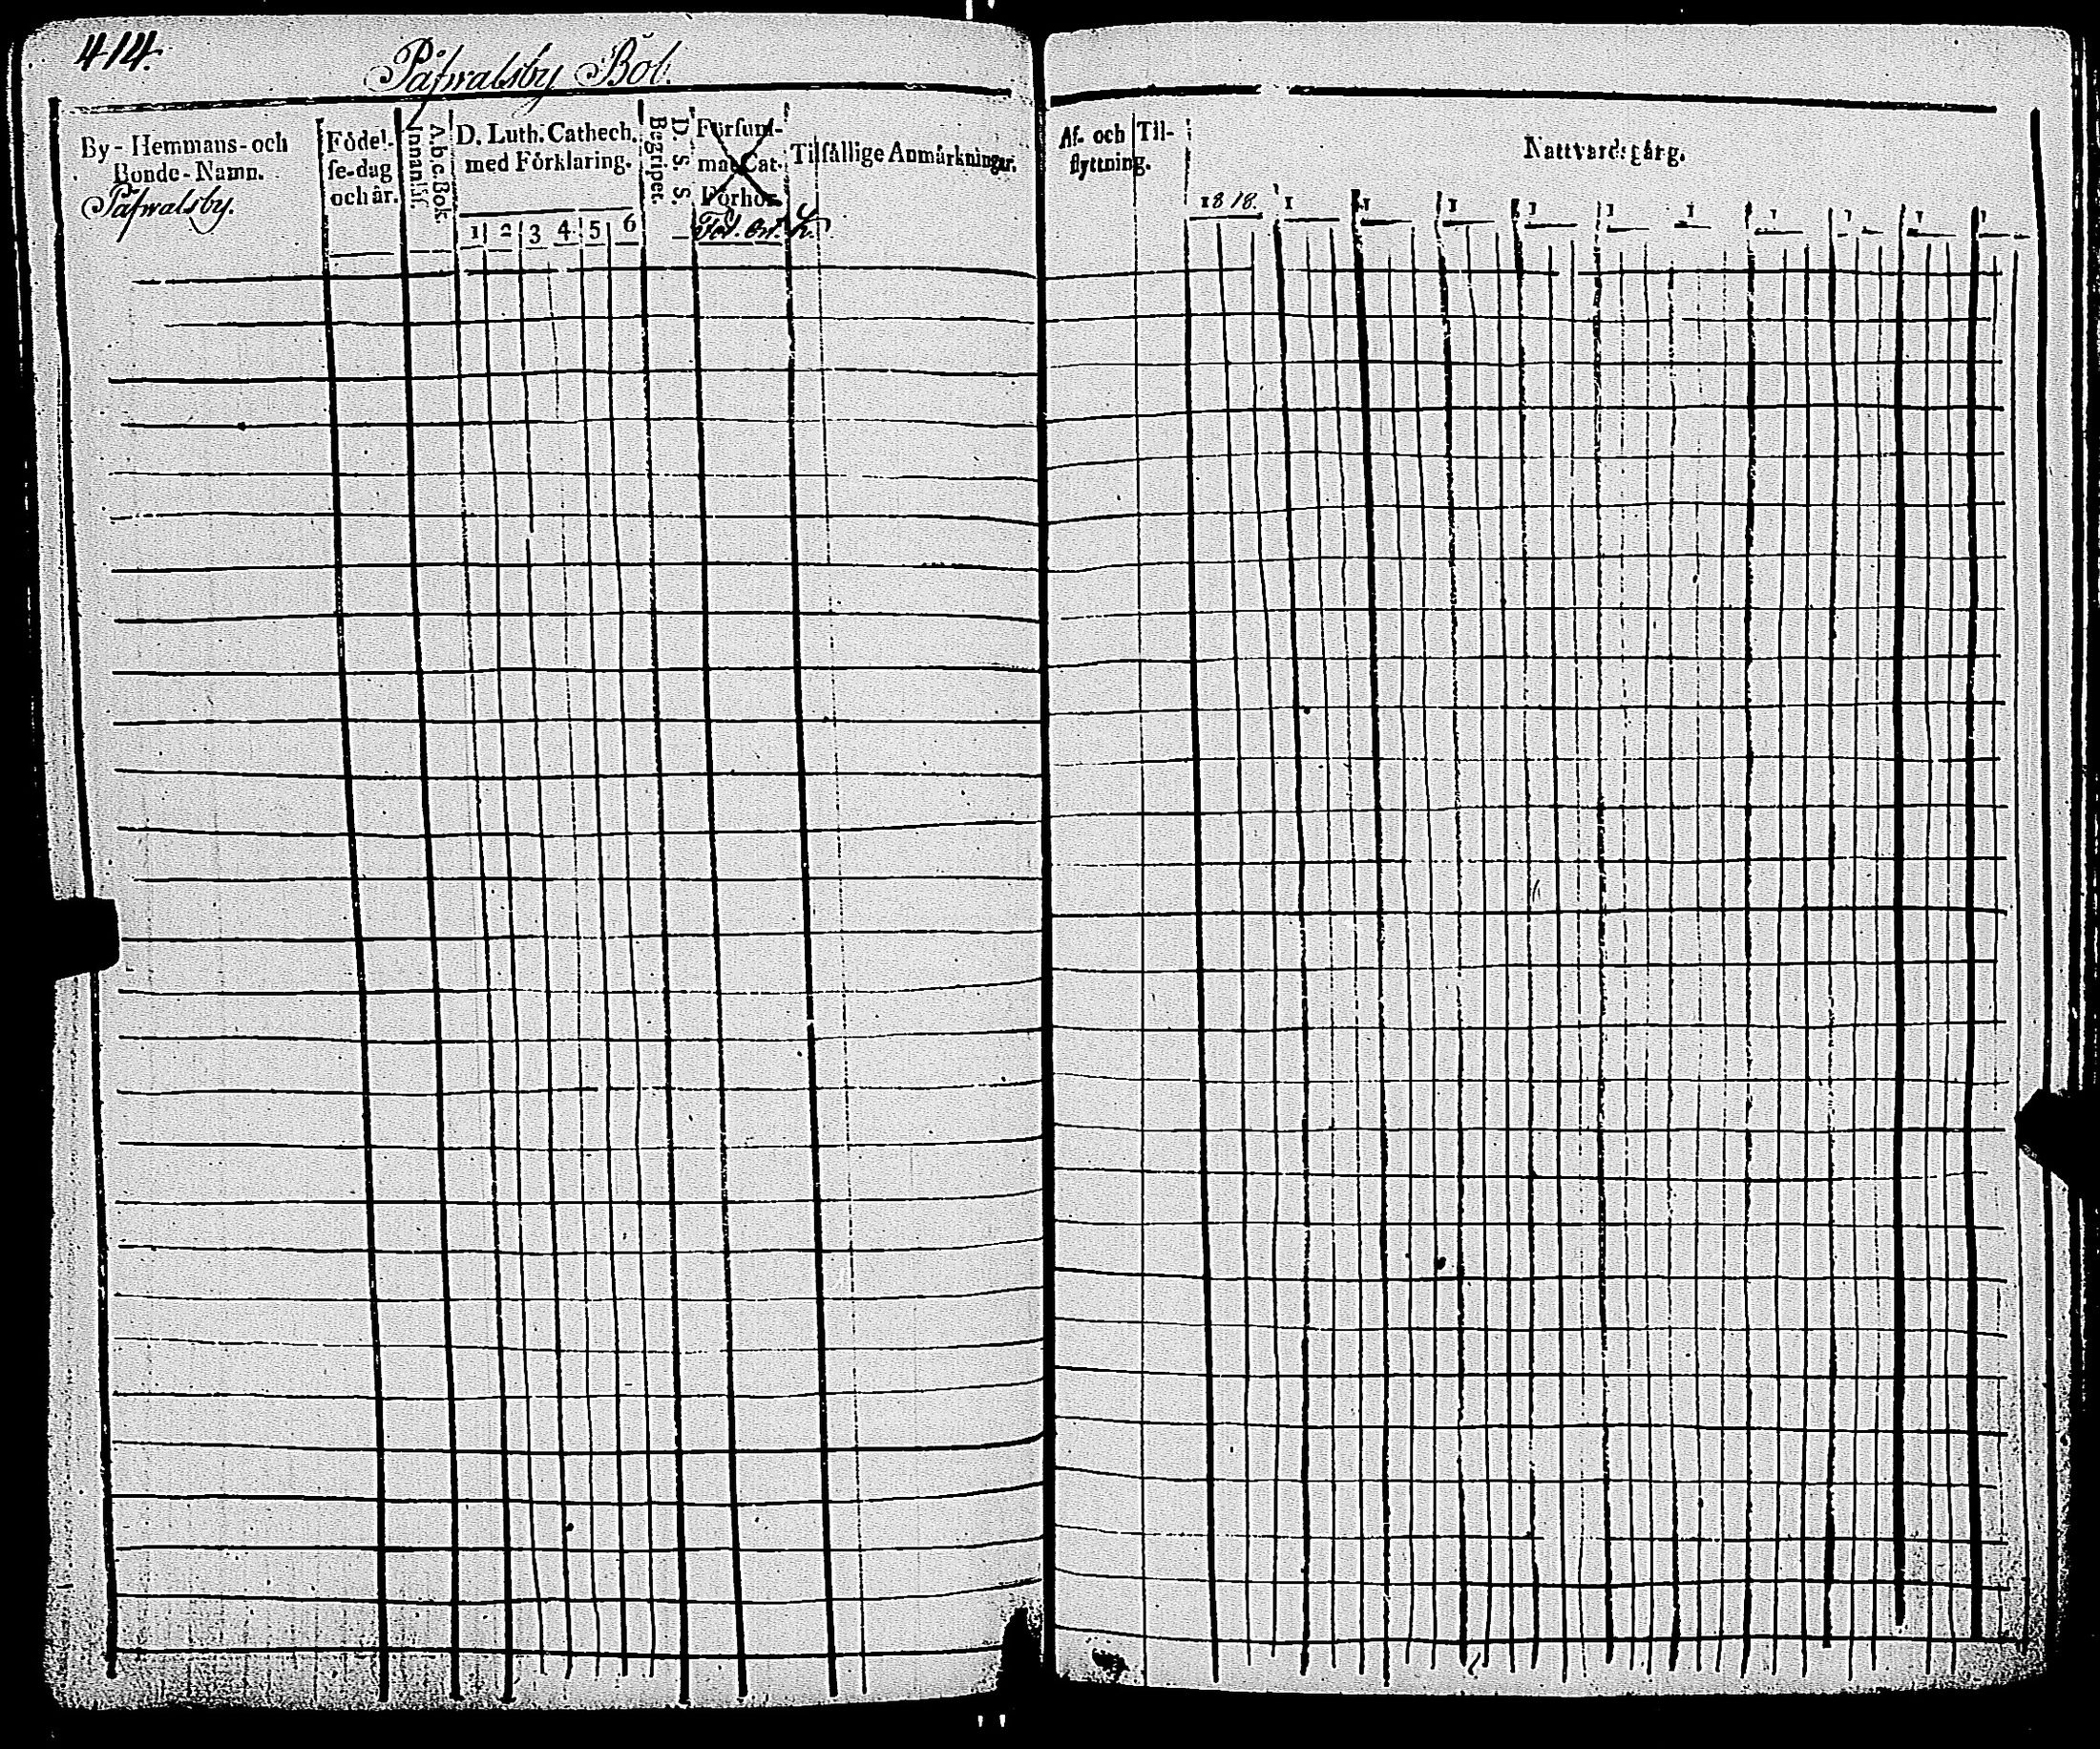 414.
Påfwalsby Bol.
By-Hemmans-och
Bonde-Namn.
Påfwalsby.
Födel-
se-dag
och år.
Innan lif.
A.b.c.Bok.
D. Luth. Cathech.
med Förklaring.
1 2 3 4 5 6
Begriper.
D. S. S.
Försum-
mat Cat.
Förhör.
Föd. Ort.
Tilfällige Anmärkningar.
Af- och Til-
flyttning.
Nattvardsgårg.
1818. 1 1 1 1 1 1 1 1 1 1